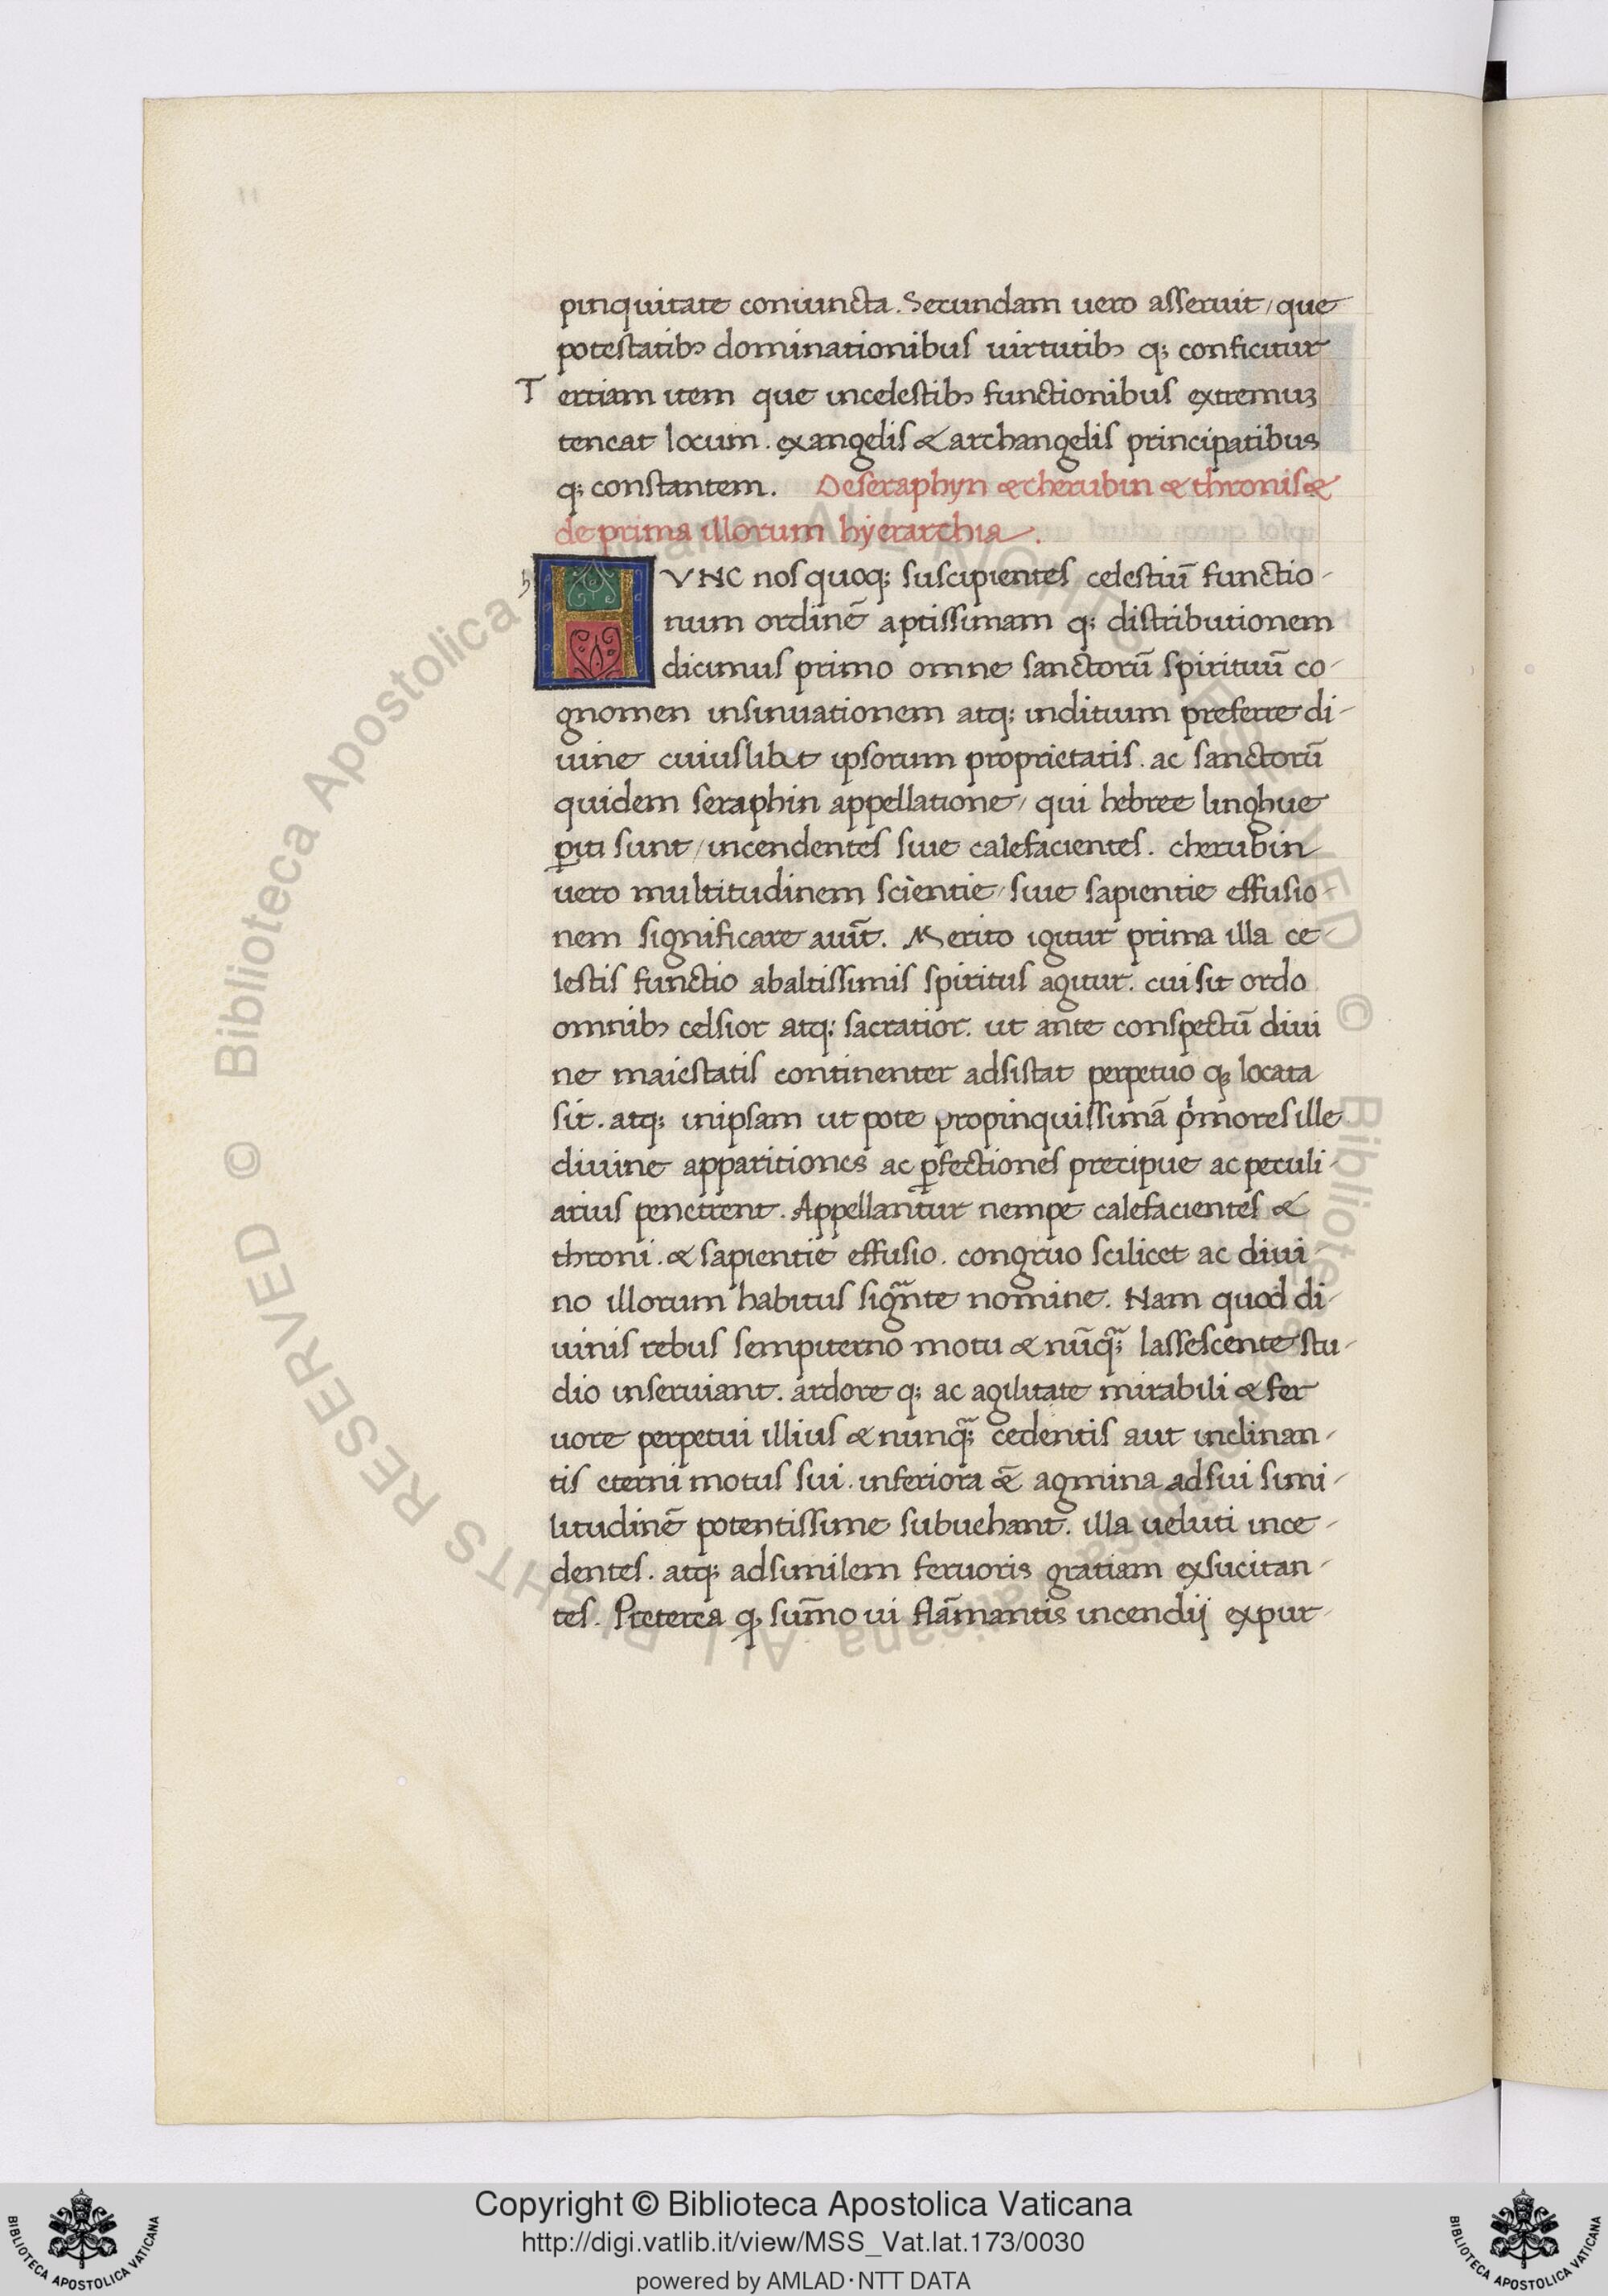 pinquitate coniuncta. Secundam uero asseruit / que
potestatibꝰ dominationibus uirtutibꝰ qꝫ conficitur
Tertiam item que incelestibꝰ functionibus extremuꝫ
teneat locum. exangelis & archangelis principatibus
qꝫ constantem. De seraphyn & cherubin & thronis &
de prima illorum hyerarchia.
h HVNC nos quoqꝫ suscipientes celestiū functio-
num ordinē aptissimam qꝫ distributionem
dicimus primo omne sanctorū spirituū co-
gnomen insinuationem atqꝫ inditium preferre di-
uine cuiuslibet ipsorum proprietatis. ac sanctorū
quidem seraphin appellatione / qui hebree linghue
ꝑiti sunt / incendentes siue calefacientes. cherubin
uero multitudinem scientie / siue sapientie effusio-
nem significare aiūt. Merito igitur prima illa ce-
lestis functio abaltissimis spiritus agitur. cui sit ordo
omnibꝰ celsior atqꝫ sacratior. ut ante conspectū diui
ne maiestatis continenter adsistat perpetuo qꝫ locata
sit. atqꝫ inipsam ut pote propinquissimā pͥmores ille
diuine apparitiones ac ꝑfectiones precipue ac peculi-
arius penetrent. Appellantur nempe calefacientes &
throni. & sapientie effusio. congruo scilicet ac diui-
no illorum habitus signᷓnte nomine. Nam quod di-
uinis rebus sempiterno motu & nūqᷓꝫ lassescente stu-
dio inseruiant. ardore qꝫ ac agilitate mirabili & fer
uore perpetui illius & nunqᷓꝫ cedentis aut inclinan-
tis eterni motus sui. inferiora &̄ agmina adsui simi-
litudinē potentissime subuehant. illa ueluti ince-
dentes. atqꝫ adsimilem feruoris gratiam exsucitan-
tes. Preterea qꝫ sum̄o ui flam̄antis incendij expur-
Copyright © Biblioteca Apostolica Vaticana
http://digi.vatlib.it/view/MSS_Vat.lat.173/0030
powered by AMLAD·NTT DATA
BIBLIOTECA APOSTOLICA VATICANA
BIBLIOTECA APOSTOLICA VATICANA